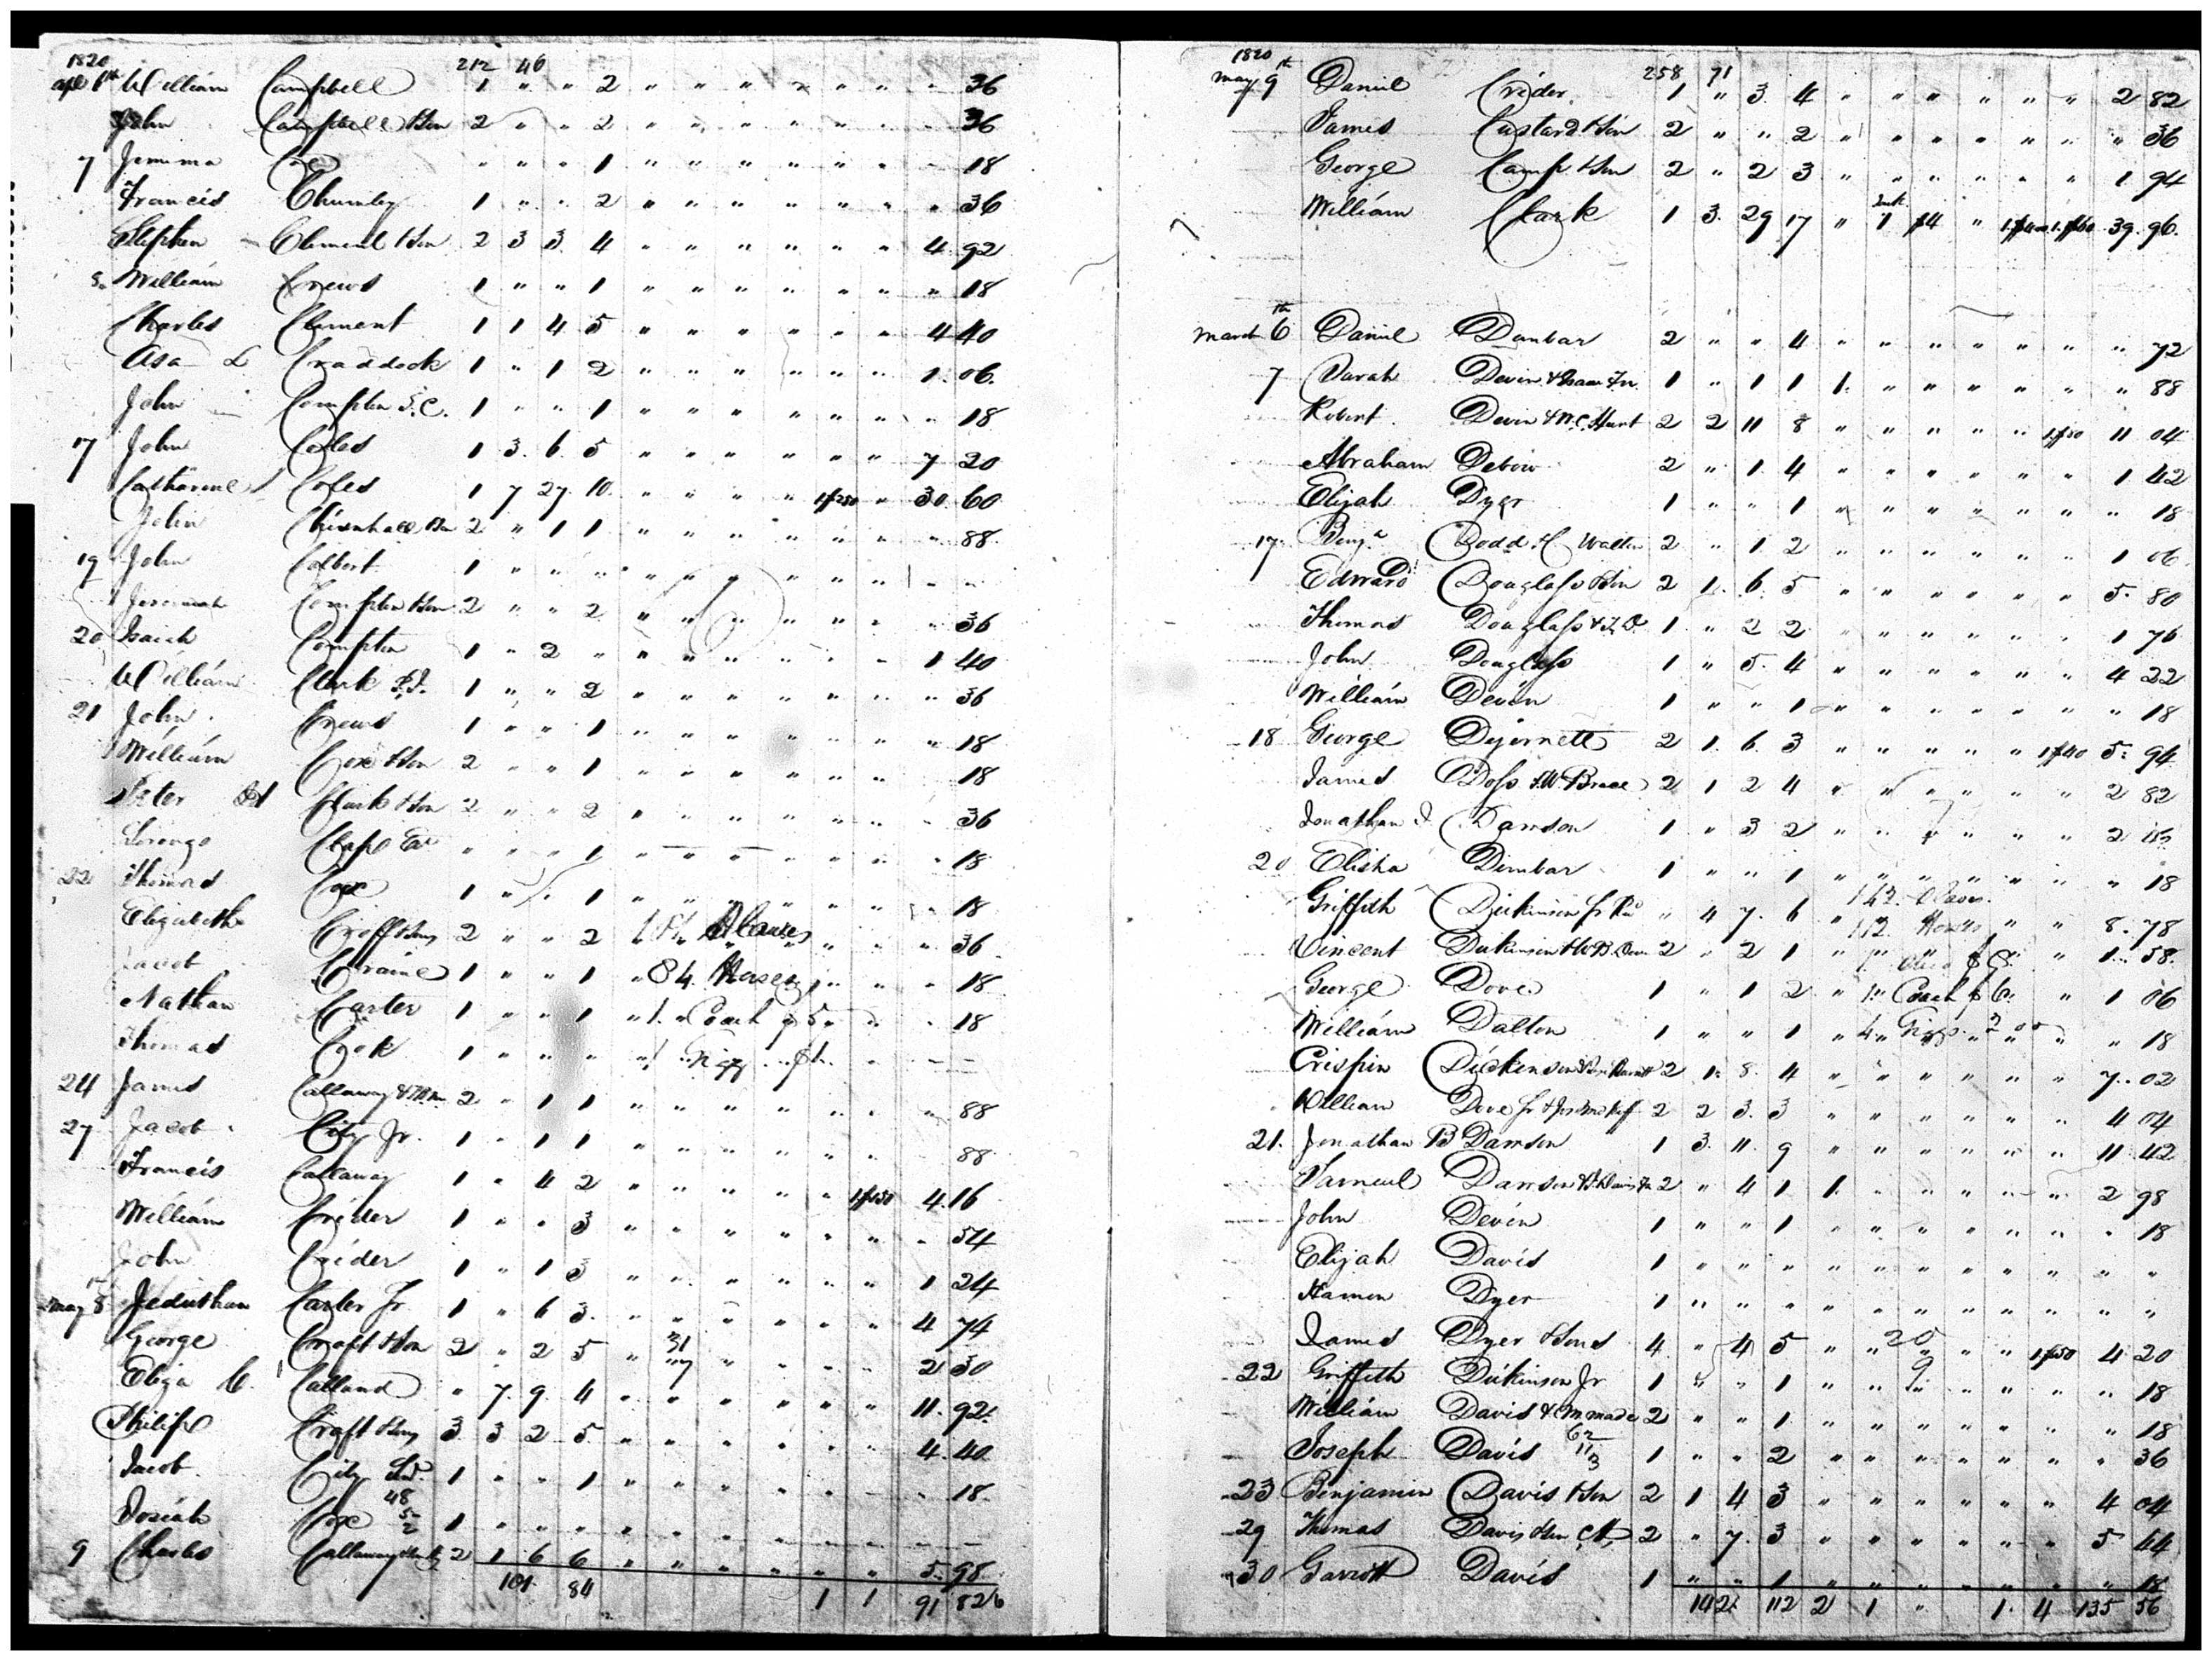 1820 212 46
apl 6th William Campbell 1 " " 2 " " " " " " " " 36
John Campbell & Son 2 " " 2 " " " " " " " " 36
7 Jemima Cox " " " 1 " " " " " " " " 18
Francis Chumley 1 " " 2 " " " " " " " " 36
Stephen Clement & Son 2 3 3 4 " " " " " " " 4 92
William Crews 1 " " 1 " " " " " " " " 18
Charles Clement 1 1 4 5 " " " " " " " 4 40
Asa L Craddock 1 " 1 2 " " " " " " " 1 06
John Compton S.C. 1 " " 1 " " " " " " " " 18
17 John Coles 1 3 6 5 " " " " " " " 7 20
Catharine Coles 1 7 27 10 " " " " " 1 $250 " 30 60
John & Son 2 " 1 1 " " " " " " " " 88
19 John Colbert 1 " " " " " " " " " " " "
Jeremiah Compton & Son 2 " " 2 " " " " " " " " 36
20 Isaiah Compton 1 " 2 " " " " " " " " 1 40
William Clark 1 " " 2 " " " " " " " " 36
21 John Crews 1 " " 1 " " " " " " " " 18
William Cox & Son 2 " " 1 " " " " " " " " 18
Peter Clark & Son 2 " " 2 " " " " " " " " 36
Lorenzo " " " 1 " " " " " " " " 18
22 Thomas Cox 1 " " 1 " " " " " " " " 18
Elizabeth 2 " " 2 184 Slaves " " " 36
Jacob Craine 1 " " 1 " 84 Horses " " " 18
Nathan Carter 1 " " 1 " 1 " Coach $5 " " " 18
Thomas Cook 1 " " " " 1 " Gigg $1 " "
24 James Callaway 2 " 1 1 " " " " " " " " 88
27 Jacob City Jr. 1 " 1 1 " " " " " " " " 88
Francis Callaway 1 " 4 2 " " " " " " 1 $150 4 16
William Crider 1 " " 3 " " " " " " " " 54
John Crider 1 " 1 3 " " " " " " " 1 24
may 8 Jeduthan Carter Jr 1 " 6 3 " " " " " " " 4 74
George Craft & Son 2 " 2 5 " 31 7 " " " " " 2 30
Eliza C Calland " 7 9 4 " " " " " " " 11 92
Philip Craft & Sons 3 3 2 5 " " " " " " " 4 40
Jacob City 1 " " 1 " " " " " " " " 18
Josiah Cox 48 5 2 1 " " " " " " " " "
9 Charles Callaway 2 1 6 6 " " " " " " " 5 98
101 84 1 1 91 82
1820 258 71
may 9th Daniel Crider 1 " 3 4 " " " " " " 2 82
James Custard & Son 2 " " 2 " " " " " " " 36
George Camp & Son 2 " 2 3 " " " " " " 1 94
William Clark 1 3 29 17 " 1 $4 " 39 96
March 6th Daniel Dunbar 2 " " 4 " " " " " " " 72
7 Sarah Devin 1 " 1 1 1 " " " " " " 88
Robert Devin & W.C. Hunt 2 2 11 8 " " " " " 1 $50 11 04
Abraham Debow 2 " 1 4 " " " " " " 1 42
Elijah Dyer 1 " " 1 " " " " " " " 18
17 Benja Dodd H Walton 2 " 1 2 " " " " " " 1 06
Edward D Douglass & Son 2 1 6 5 " " " " " " 5 80
Thomas Douglass 1 " 2 2 " " " " " " 1 76
John Douglass 1 " 5 4 " " " " " " 4 22
William Devin 1 " " 1 " " " " " " " 18
18 George Dejornett 2 1 6 3 " " " " " 1 $40 5 94
James Doss & W. Brace 2 1 2 4 " " " " " " 2 82
Jonathan Dawson 1 " 3 2 " " " " " " 2
20 Elisha Dunbar 1 " " 1 " " " " " " " 18
Griffith Dickinson " 4 7 6 142 Slaves 112 Horses " " 8 78
Vincent Dickinson 2 " 2 1 " " " " 1 58
George Dove 1 " 1 2 " 1 Coach $6 " 1 06
William Dalton 1 " " 1 " 4 Giggs 2 00 " " 18
Crispin Dickinson 2 1 8 4 " " " " " " 7 02
William Dove 2 2 3 3 " " " " " " 4 04
21 Jonathan B Dawson 1 3 11 9 " " " " " " 11 42
Samuel Dawson 2 " 4 1 1 " " " " " 2 98
John Devin 1 " " 1 " " " " " " " 18
Elijah Davis 1 " " " " " " " " " " "
Hamon Dyer 1 " " " " " " " " " " "
James Dyer & Sons 4 " 4 5 " " 20 " " 1 $50 4 20
22 Griffith Dickinson Jr 1 " " 1 " " 9 " " " " 18
William Davis 2 " " 1 " " " " " " " 18
Joseph Davis 62 11 3 1 " " 2 " " " " " " " 36
23 Benjamin Davis & Son 2 1 4 3 " " " " " " 4 04
29 Thomas Davis & Son 2 " 7 3 " " " " " " 5 44
30 Garrott Davis 1 " " 1 " " " " " " " 18
142 112 2 1 " 1 4 135 56